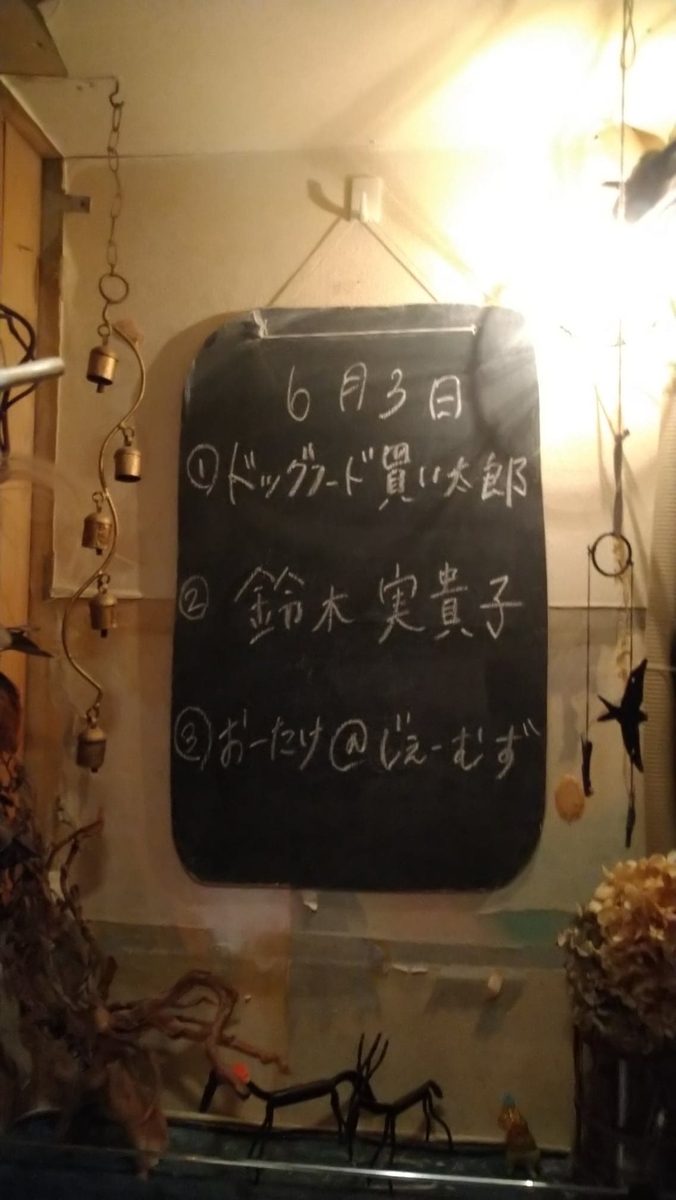 6月3日
①ドッグフード買い太郎
②鈴木実貴子
③おーたけ@じぇーむず